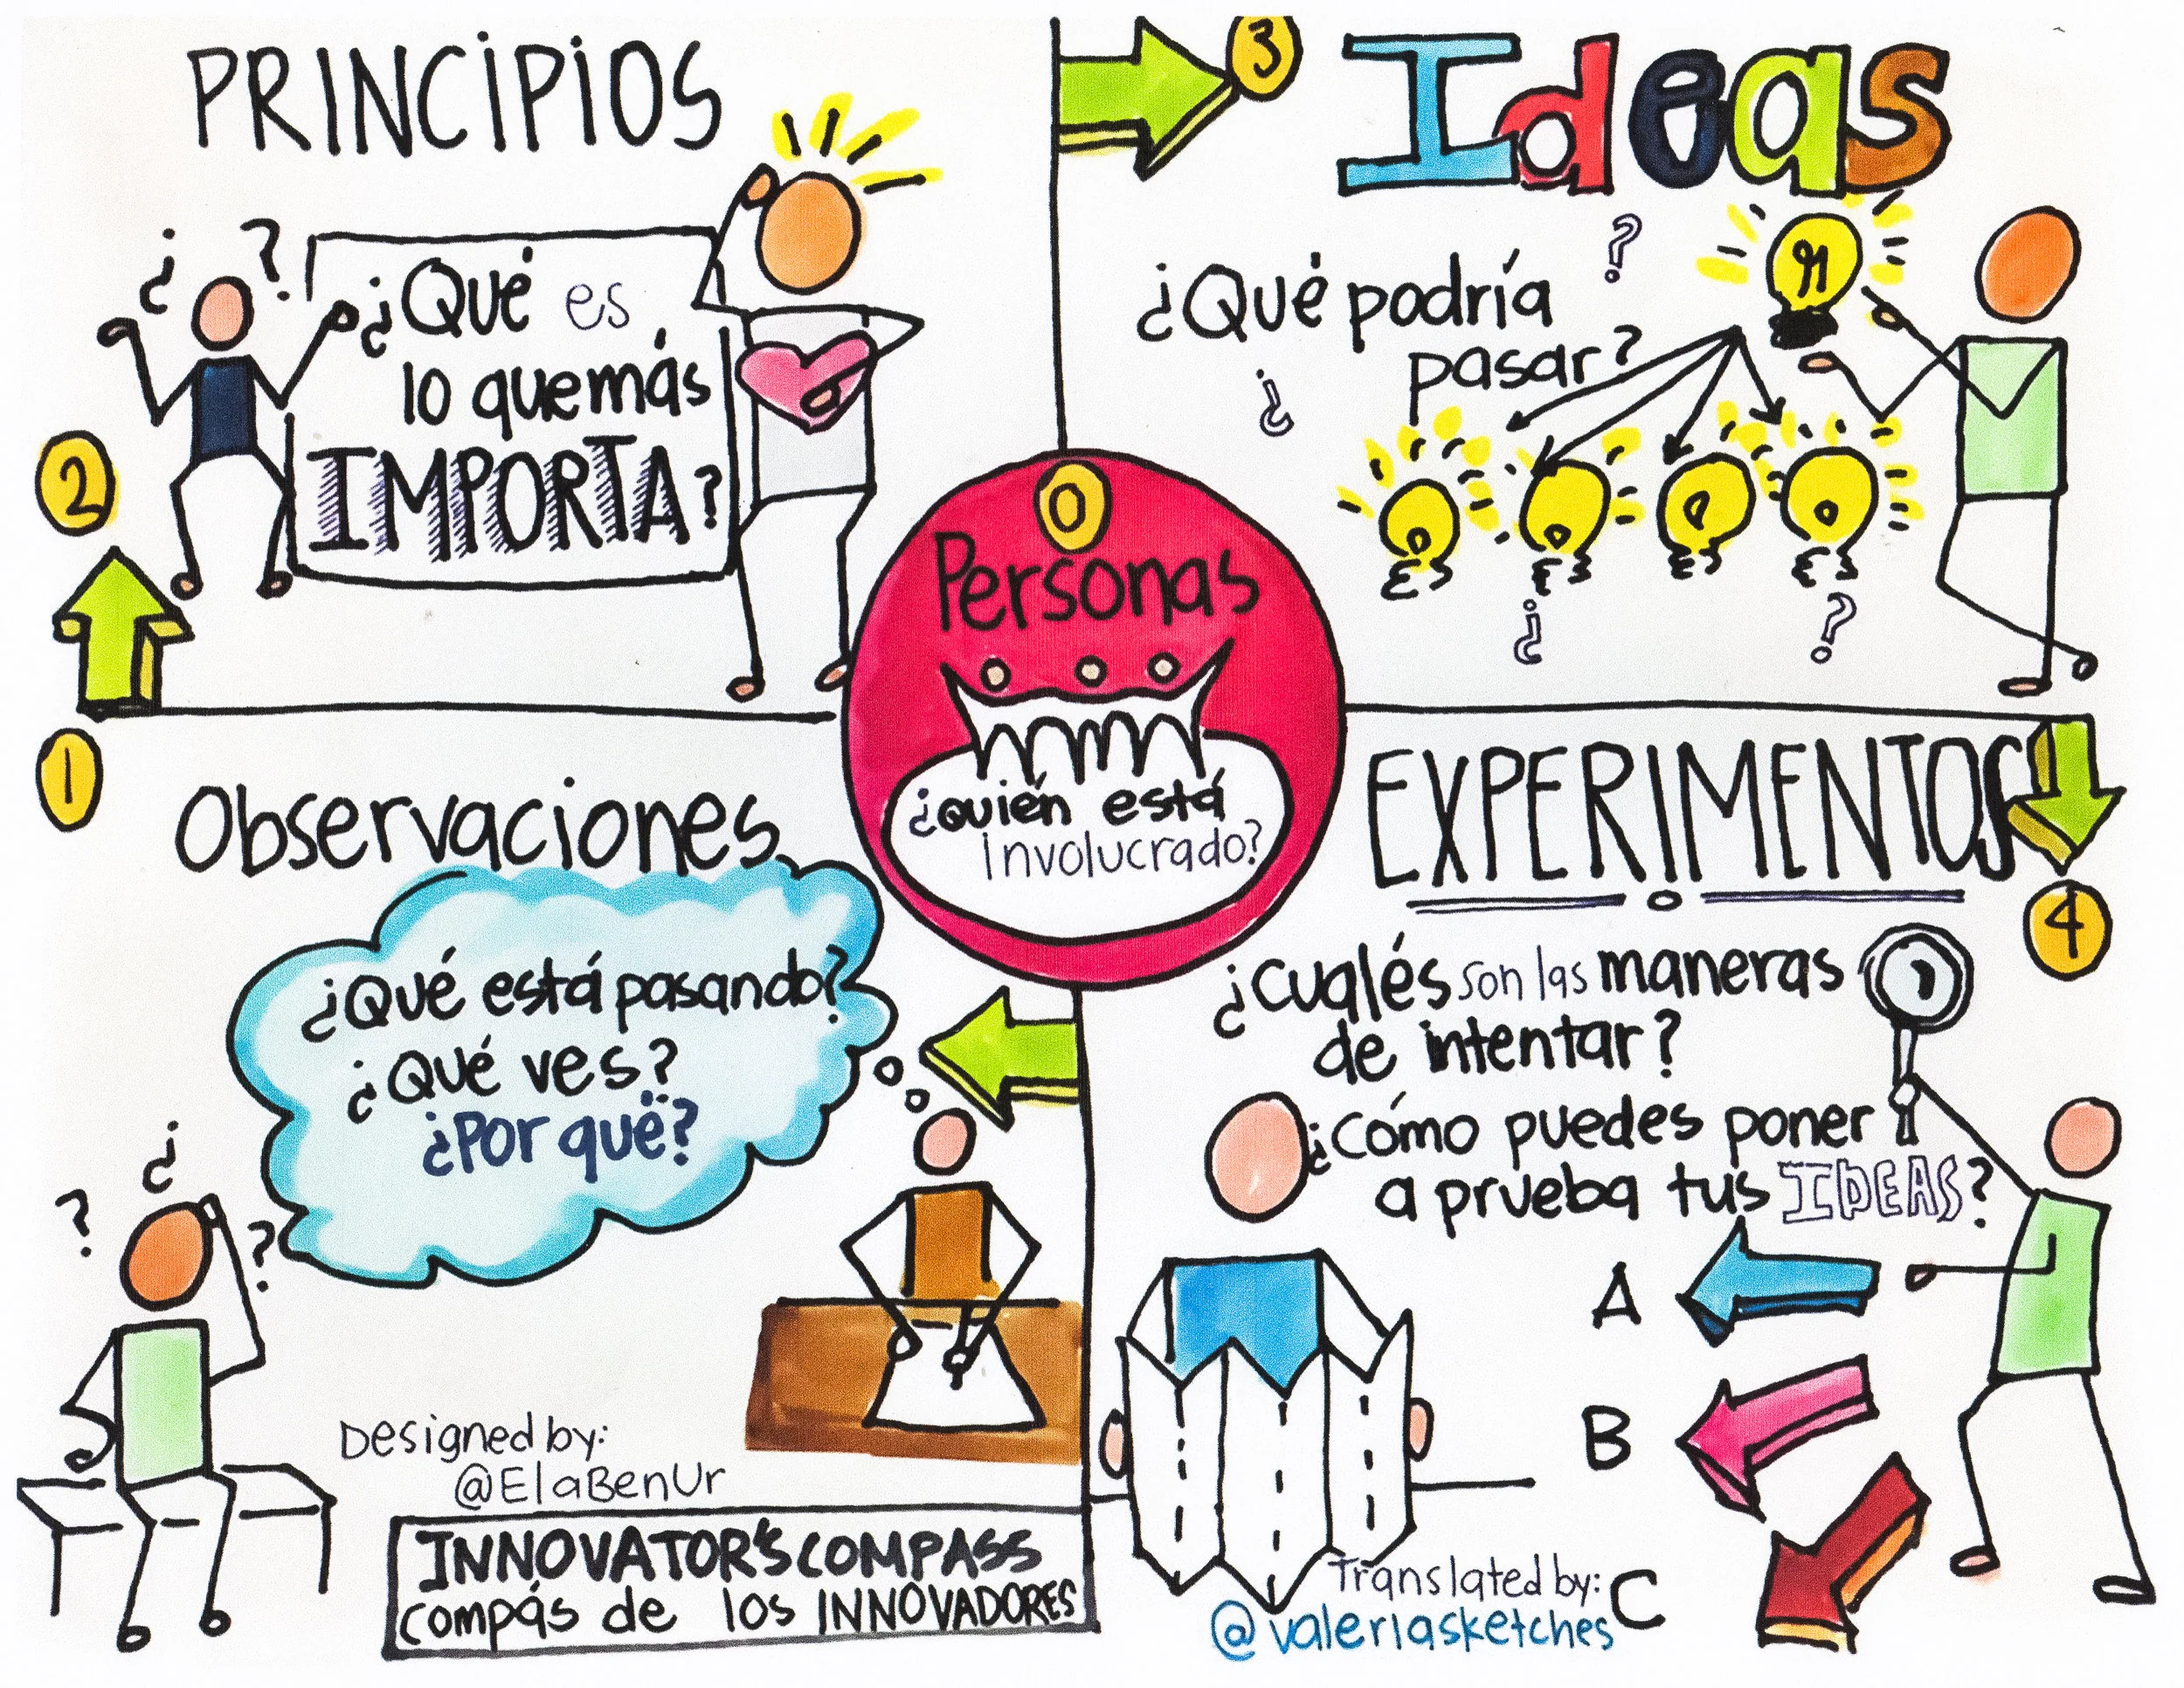 PRINCIPIOS
¿ ?
¿Qué es
lo que más
IMPORTA?
2
3
Ideas
?
¿Qué podría
pasar?
¿
¿ ?
0
Personas
¿quién está
Involucrado?
1
Observaciones
¿Qué está pasando?
¿Qué ves?
¿Por qué?
¿
? ?
Designed by:
@ElaBenUr
INNOVATOR'S COMPASS
compás de los INNOVADORES
EXPERIMENTOS
4
¿Cualés son las maneras
de intentar?
¿Cómo puedes poner
a prueba tus IDEAS?
A
B
C
Translated by:
@valeriasketches